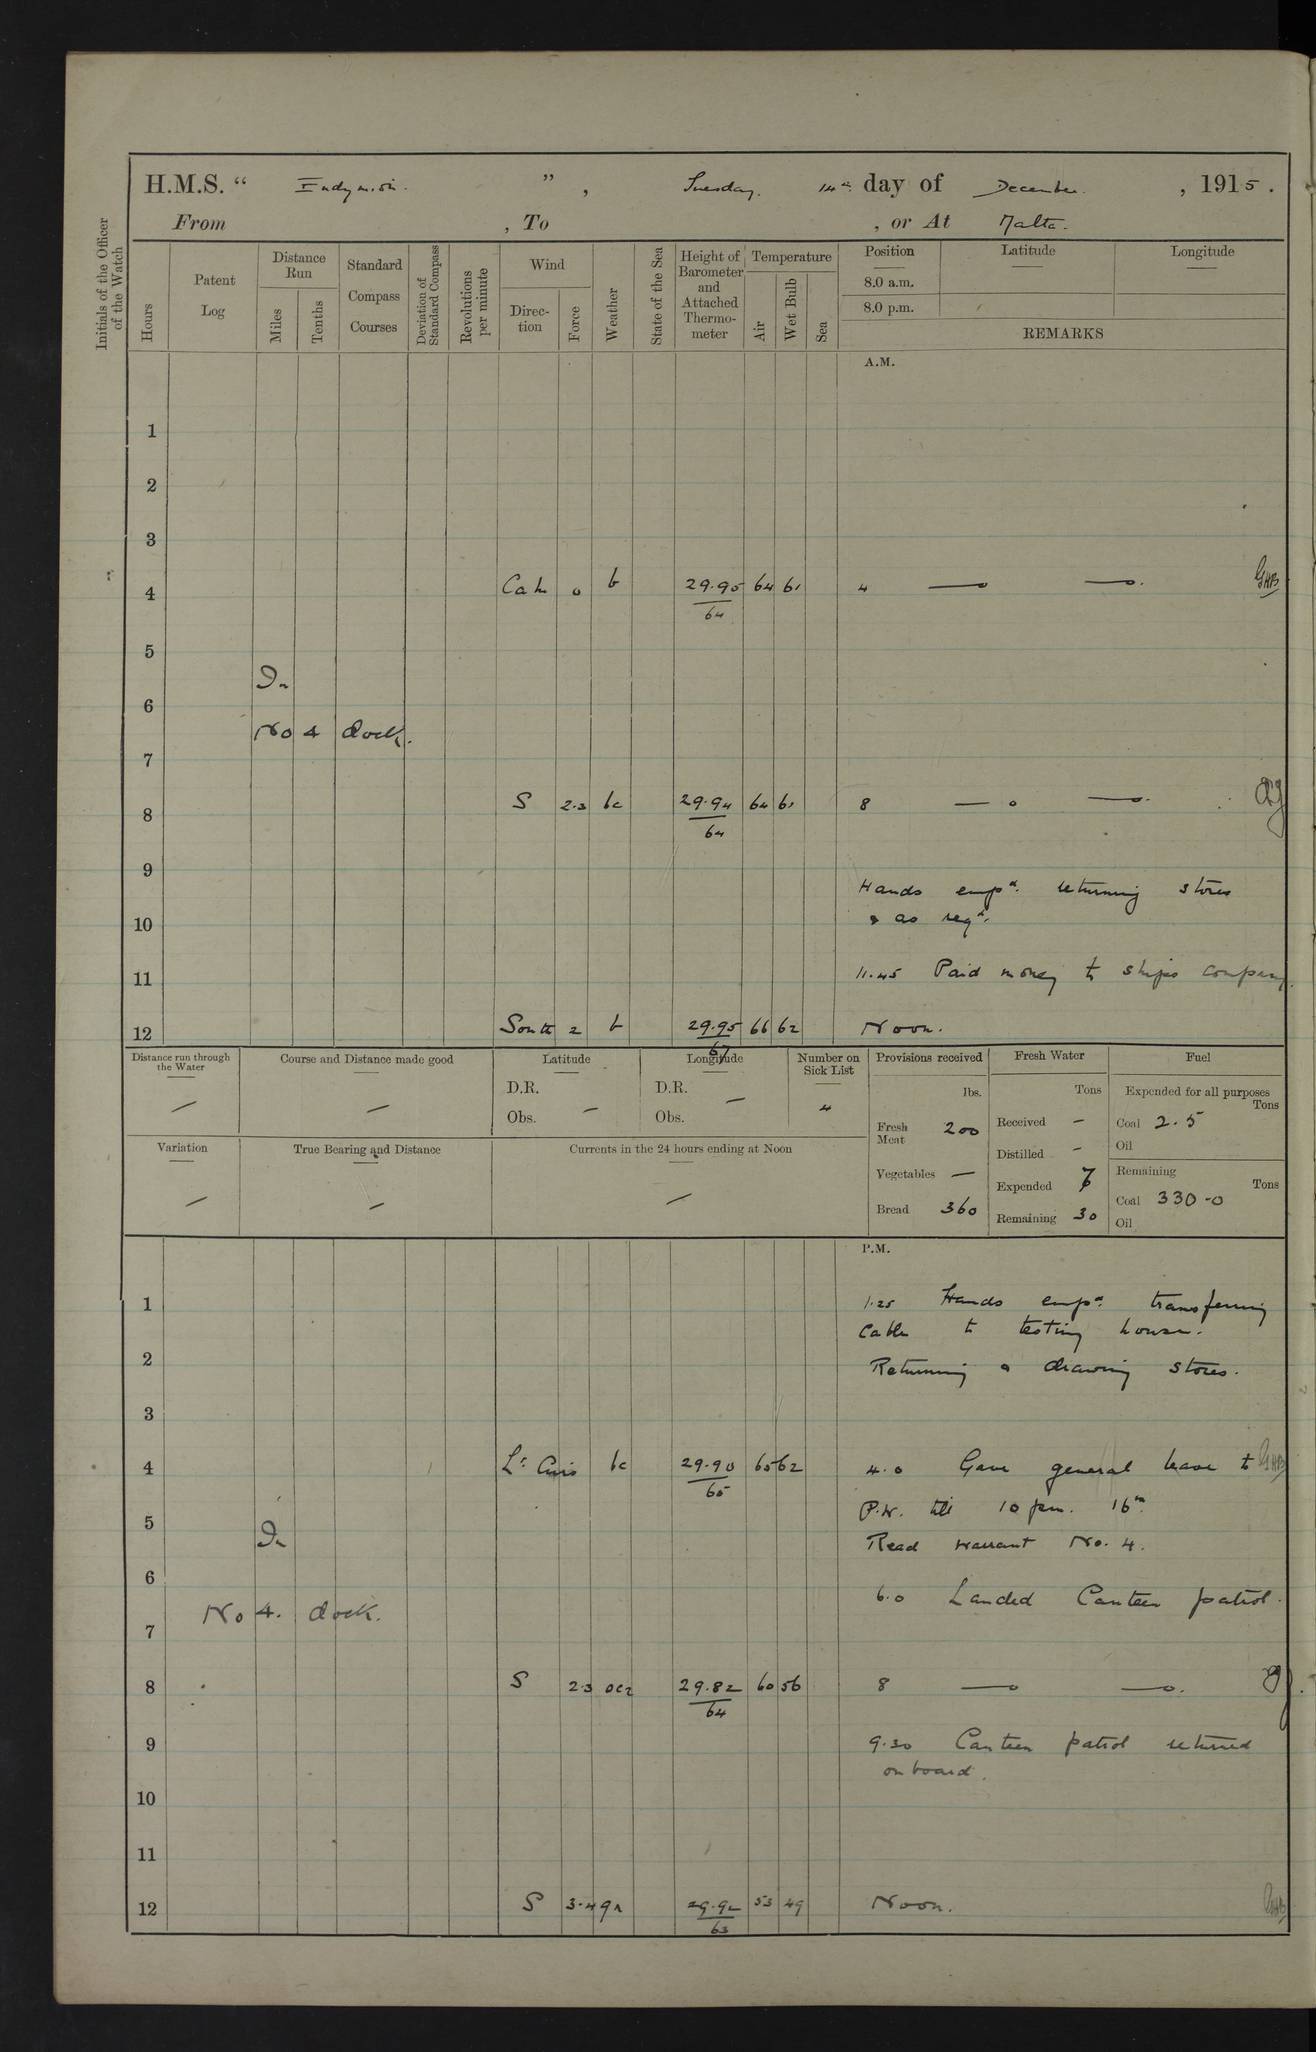 H.M.S. “ Endymion. ” , Tuesday. 14th day of December. , 1915.
From , To , or At Malta.
Initials of the Officer of the Watch
Hours
Patent Log
Distance Run
Miles
Tenths
Standard Compass Courses
Deviation of Standard Compass
Revolutions per minute
Wind
Direction
Force
Weather
State of the Sea
Height of Barometer and Attached Thermometer
Temperature
Air
Wet Bulb
Sea
Position Latitude Longitude
8.0 a.m.
8.0 p.m.
REMARKS
A.M.
1
2
3
4 Calm 0 b 29.95 64 61 4 —o —o. GHB
64
5
In
6
No 4 dock.
7
8 S 2.3 bc 29.94 64 61 8 — o —o.
64
9
Hands empd. returning stores
10 & as reqd.
11 11.45 Paid money to ships company.
12 South 2 b 29.95 66 62 Noon.
67
Distance run through the Water —
Course and Distance made good —
Latitude
D.R.
Obs. —
Longitude
D.R. —
Obs.
Number on Sick List
4
Variation —
True Bearing and Distance —
Currents in the 24 hours ending at Noon —
Provisions received
lbs.
Fresh Meat 200
Vegetables —
Bread 360
Fresh Water
Tons
Received —
Distilled -
Expended 7
Remaining 30
Fuel
Expended for all purposes
Tons
Coal 2.5
Oil
Remaining
Tons
Coal 330-0
Oil
P.M.
1 1.25 Hands empd. transferring
Cable to testing house.
2 Returning & drawing stores.
3
4 Lt. Airs bc 29.90 65 62 4.0 Gave general leave to GHB
65
P.W. till 10 pm. 16th
5 In
Read warrant No. 4.
6 6.0 Landed Canteen patrol.
No 4. dock.
7
8 S 2.3 29.82 60 56 8 —o —o.
64
9 9.30 Canteen patrol returned
on board.
10
11
12 S 3.4 29.92 53 49 Noon. GHB
63